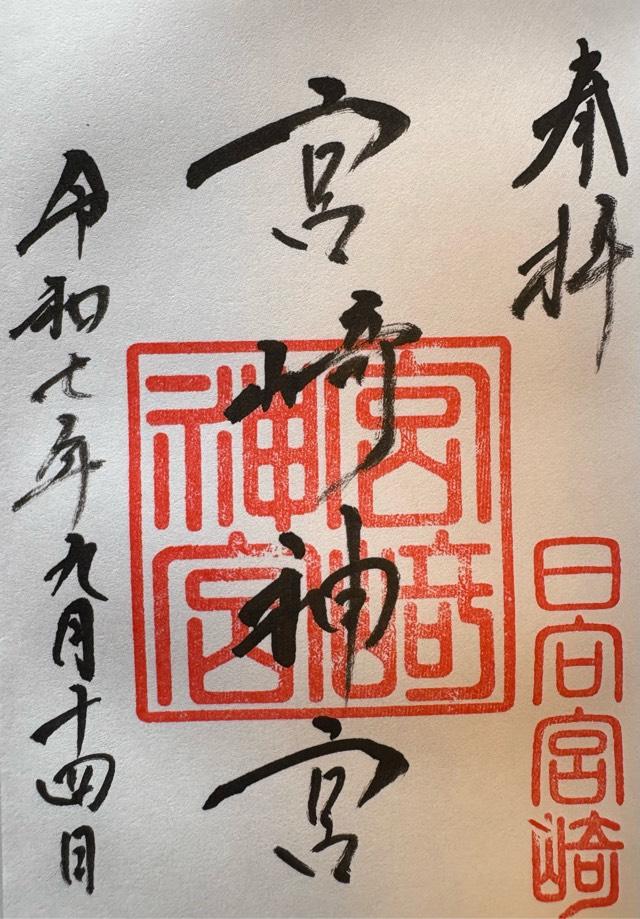 奉拝
日向宮崎
宮崎神宮
宮崎神宮
令和七年九月十四日